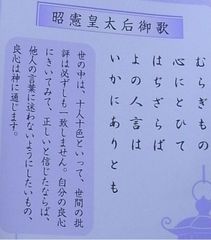 昭憲皇太后御歌
むらぎもの
心にとひて
はぢざらば
よの人言は
いかにありとも
世の中は、十人十色といって、世間の批
評は必ずしも一致しません。自分の良心
にきいてみて、正しいと信じたならば、
他人の言葉に迷わないようにしたいもの、
良心は神に通じます。